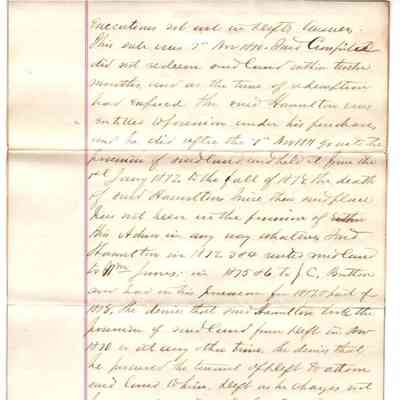 Executions set out in Defts Answer.
This sale was 5th Nov 1870. And Campfield
did not redeem said Land within twelve
months, and as the time of redemption
had expired the said Hamilton was
entitled to possession under his purchase,
and he did after the 5th Nov 1871 go into the
possession of said Land and held it from the
1st Jany 1872 to the fall of 1873 the death
of said Hamilton since then said place
has not been in the possession of
his Admr in any way whatever. And
Hamilton in 1872 3 & 4 rented said Land
to Wm Jones, in 1875 & 6 to J. C. Button
and had in his possession for 1870 part of
1878, He denies that said Hamilton took the
possession of said Land from Deft in Nov
1870 or at any other time. He denies that
he procured the tenant of Deft to attorn
said Land White, Deft as he charges not